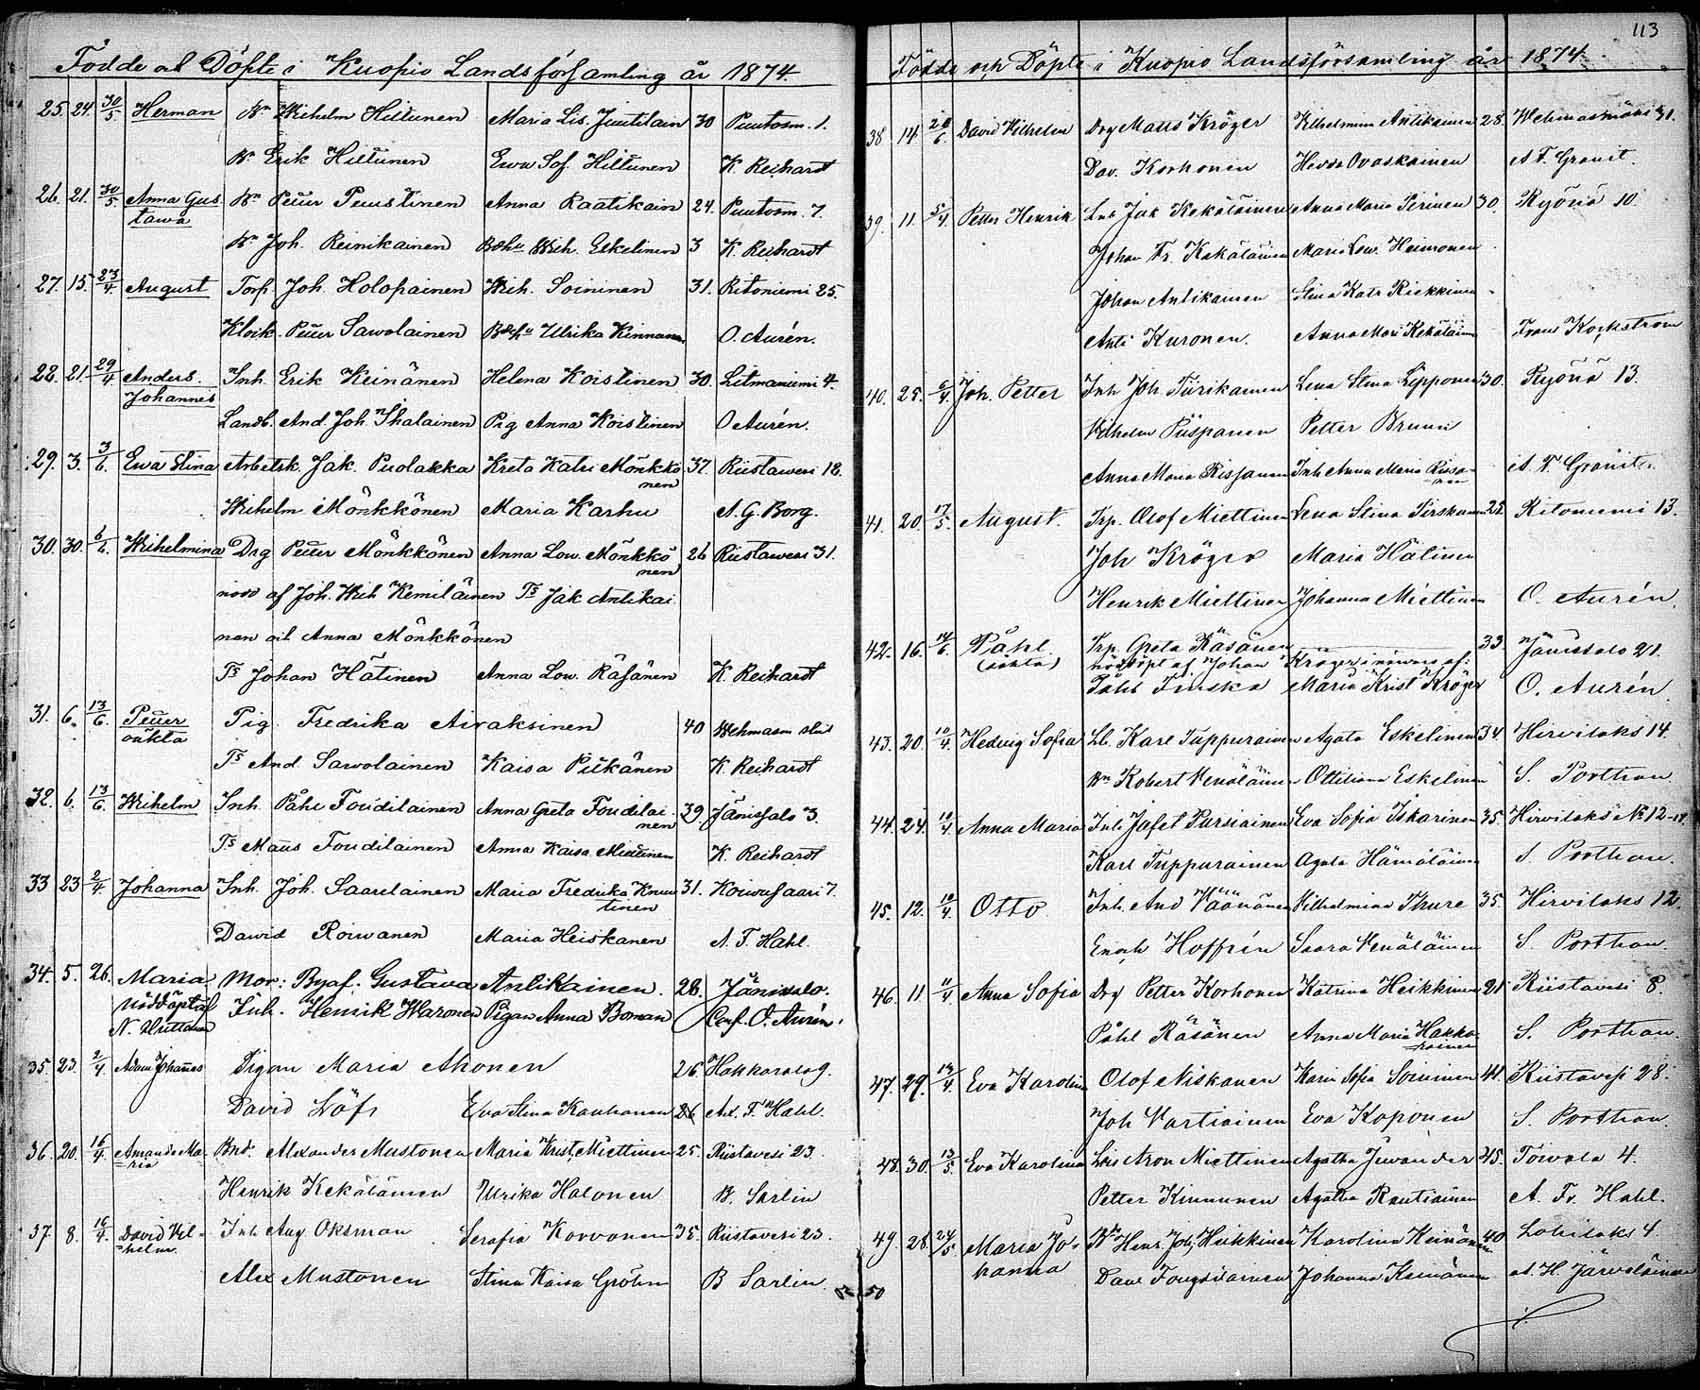 Födde och Döpte i Kuopio Landsförsamling år 1874.
25. 24. 30/5 Herman Bn Wilhelm Hiltunen Maria Lis. Juutilain 30 Puutosm. 1.
Bn Erik Hiltunen Ewa Sof. Hiltunen K. Reihardt
26. 21. 30/5 Anna Gus- Bn Petter Puustinen Anna Raatikain 24. Puutosm. 7.
tawa
Bn Joh. Reinikainen Wilh. Eskelinen 3 K. Reihardt
27. 15. 23/4 August Torp. Joh. Holopainen Wilh. Soininen 31. Ritoniemi 25.
Petter Sawolainen Ulrika Kinnunen O. Aurén.
28. 21. 29/4 Anders Inh. Erik Keinänen Helena Koistinen 30. Litmaniemi 4.
Johannes
Landb. And. Joh. Ihalainen Pig Anna Koistinen O Aurén.
29. 3. 3/6. Ewa Stina Arbetsk. Jak. Puolakka Kreta Katri Mönkkö 37. Riistawesi 18.
nen
Wilhelm Mönkkönen Maria Karhu A. G. Borg.
30. 30. 6/6. Wilhelmina Drg Petter Mönkkönen Anna Low. Mönkkö 26 Riistawesi 31.
nen
nöd af Joh. Wilh Kemiläinen Ts Jak Antikai
nen och Anna Mönkkönen
Ts Johan Hätinen Anna Low. Räsänen K. Reihardt
31. 6. 13/6. Petter Pig. Fredrika Airaksinen 40 Wehmasm
oäkta
Ts And. Sawolainen Kaisa Pitkänen K. Reihardt
32. 6. 13/6. Wilhelm Inh. Påhl Toudilainen Anna Greta Toudilai 29. Jänissalo 3.
nen
Ts Matts Toudilainen Anna Kaisa Miettinen K. Reihardt
33 23 2/4. Johanna Inh. Joh. Saarelainen Maria Fredrika Knuu 31. Koiwusaari 7.
tinen
Dawid Roiwanen Maria Heiskanen A. F. Hahl.
34. 5. 26. Maria Mor: Gustava Antikainen. 28. Jänissalo.
nöddöpt af Inh. Henrik Waronen Pigan Anna Boman O. Aurén.
35. 23. 2/4. Adam Johannes Pigan Maria Ahonen 26. Hakkarala 9.
David Löf Eva Stina Kauhanen 26 Ax. F. Hahl.
36. 20. 16/4. Amanda Ma- Bnd. Alexander Mustonen Maria Krist. Miettinen 25. Riistavesi 23.
ria
Henrik Kekäläinen Ulrika Halonen B. Sarlin
37. 8. 16/4. David Vil- Inh Aug Oksman Serafia Korvonen 35. Riistavesi 23.
helm
Alex Mustonen Stina Kaisa Gröhn B Sarlin.
113
Födde och Döpte i Kuopio Landsförsamling år 1874.
38 14 28/6. David Vilhelm Drg Matts Kröger Vilhelmina Antikainen 28. Wehmasmäki 31.
Dav. Korhonen Hedda Ovaskainen A. F. Granit.
39. 11. 5/4. Petter Henrik Inh Jak Kekäläinen Anna Maria Pirinen 30. Ryönä 10.
Johan Fr. Kekäläinen Maria Low. Heimonen
Johan Antikainen Stina Katr Riekkinen
Anti Kuronen. Anna Mari Kekäläinen Frans Kockström
40. 25. 6/4. Joh. Petter Inh Joh Tiirikainen Lena Stina Lipponen 30. Ryönä 13.
Vilhelm Piispanen Petter Bruun
Anna Maria Rissanen Inh Anna Maria Rissa-
nen A. F. Granit.
41. 20. 17/5. August. Trp. Olof Miettinen Lena Stina Pirskanen 22. Ritoniemi 13.
Joh Kröger Maria Hätinen
Henrik Miettinen Johanna Miettinen O. Aurén.
42. 16. 14/6. Påhl Trp. Greta Räsänen 33 Jänissalo 21.
(oäkta) nöddöpt af Johan Kröger i närvaro af:
Påhl Finska Maria Krist Kröger O. Aurén
43. 20. 10/4. Hedvig Sofia Lb. Karl Tuppurainen Agata Eskelinen 34. Hirvilaks 14.
Bn Robert Venäläinen Ottiliana Eskelinen S. Porthan
44. 24. 10/4. Anna Maria Inh Jafet Parsiainen Eva Sofia Iskarinen 35. Hirvilaks No 12
Karl Tuppurainen Agata Hämäläinen S. Porthan.
45. 12. 10/4. Otto Inh. And Väänänen Vilhelmina Thure 35. Hirvilaks 12.
Enoch Hoffrén Saara Venäläinen S. Porthan.
46. 11. 11/4. Anna Sofia Drg Petter Korhonen Katrina Heikkinen 21 Riistavesi 8.
Påhl Räsänen Anna Maria Hakka-
rainen S. Porthan.
47. 29. 12/4. Eva Karolina Olof Niskanen Karin Sofia Soininen 41. Riistavesi 28.
Joh Vartiainen Eva Koponen S. Porthan.
48. 30. 13/5. Eva Karolina Aron Miettinen Agatha Juvander 45. Toivala 4.
Petter Kinnunen Agatha Rautiainen A. Fr. Hahl.
49. 28. 24/5 Maria Jo- Bn Henr. Joh Heikkinen Karolina Keinänen 40 Lohilaks 4
hanna Dav. Tougidainen Johanna Keinänen A. H. Järveläinen
50